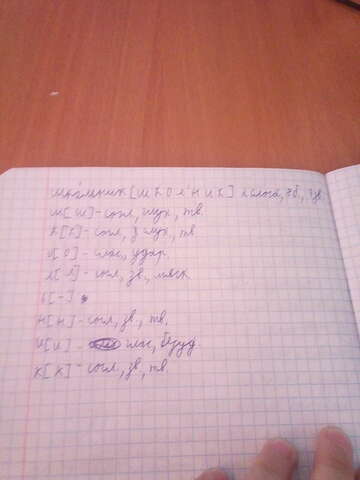 школьник [ш к о л' н и к] 2 слога, зв
ш[ш]-согл, глух, тв.
к[к]-согл, глух, тв
о[о]-глас, удар.
л[л']-согл, зв, мягк
ь[-]
н[н]-согл, зв, тв.
и[и]- глас, безуд.
к[к]-согл, зв, тв.